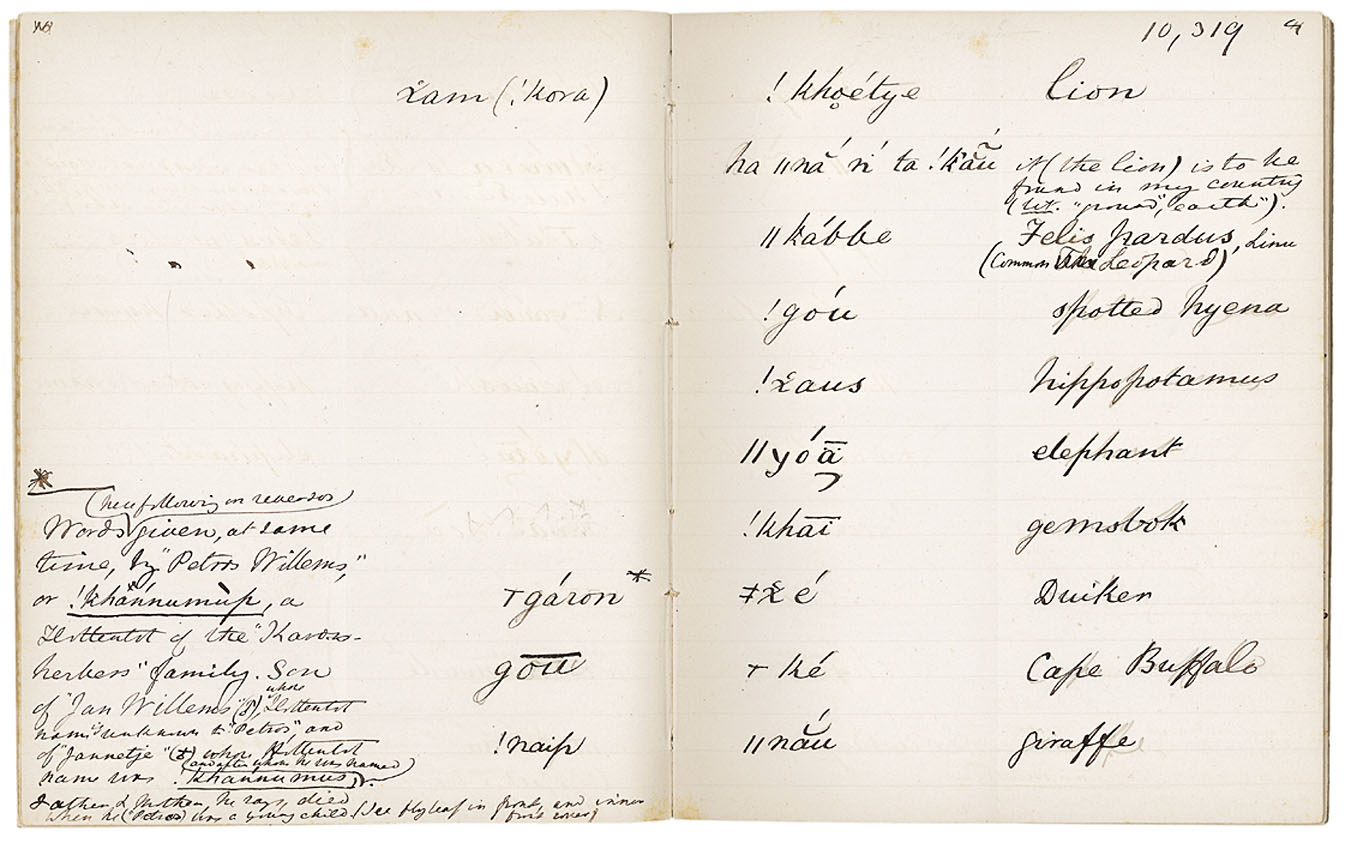 χam (!kora)
*
(the following on reverses)
Words given, at same
time, by "Petros Willems,"
or !khánnumùp, a
Hottentot of the "Karus-
herbers" family. Son
of "Jan Willems" whose Hottentot
name unknown to "Petros", and
of "Jannetje" whose Hottentot
(and after whom he was named)
name was !khannumus.
Father & Mother, he says, died
when he (Petros) was a young child. (See flyleaf in front, and inner
front cover)
⊤gáron*
gōū
!naip
10,319
!kho̥étye lion
ha ǁnắ ń ta !k'ắu it (the lion) is to be
found in my country
(lit. "ground", earth").
ǁkábbe Felis pardus, Linn
(Common Leopard)
!góu spotted hyena
!χaus hippopotamus
ǁyóā elephant
!khāī gemsbok
ǂχé Duiker
⊤ké Cape Buffalo
ǁnắu giraffe